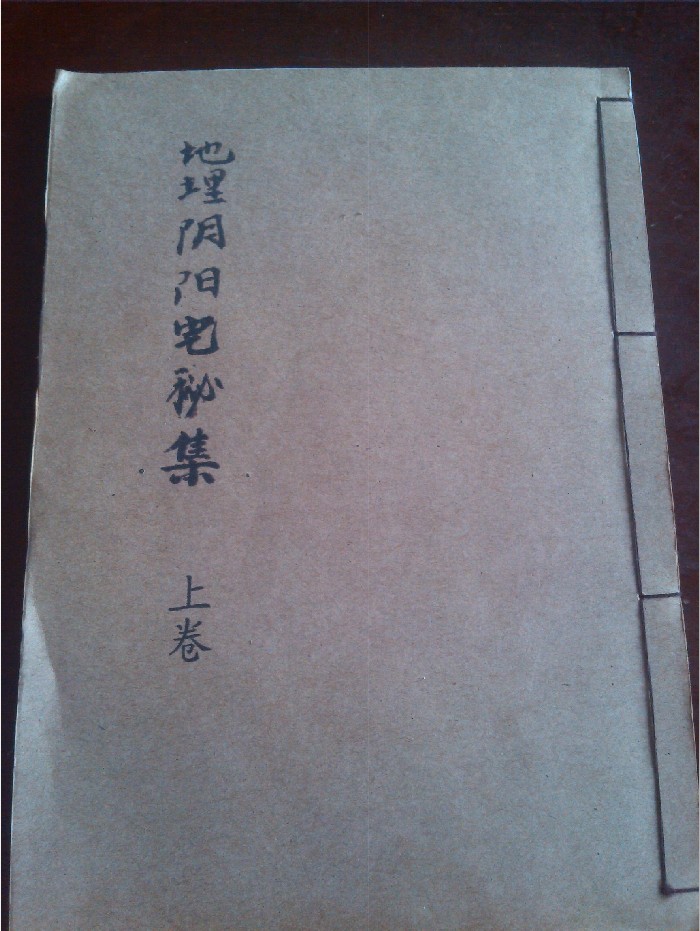 地理阴阳宅秘集
上卷